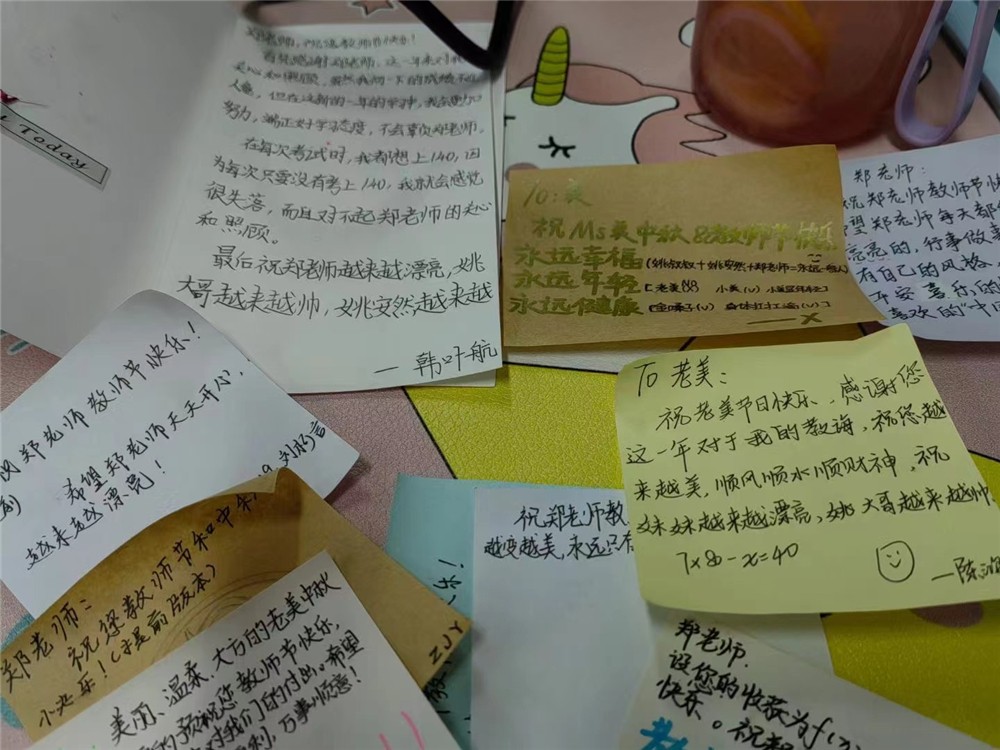 Today
郑老师,祝您教师节快乐!
首先感谢郑老师,这一年来对我的
关心和照顾,虽然我初一下的成绩不尽
人意,但在这新的一年的学习中,我会更加
努力,端正对学习态度,不会辜负郑老师。
在每次考试时,我都想上140,因
为每次只要没有考上140,我就会感觉
很失落,而且对不起郑老师的关心
和照顾。
最后祝郑老师越来越漂亮,姚
大哥越来越帅,姚安然越来越
一 韩叶航
To:美
祝Ms美中秋&教师节快乐
永远幸福
永远年轻
永远健康
郑老师:
祝郑老师教师节快
望郑老师每天都
亮亮的,行事做事
有自己的风格
平安喜乐的
喜欢的
郑老师教师节快乐!
希望郑老师天天开心,
越来越漂亮!
To 老美:
祝老美节日快乐,感谢您
这一年对于我的教诲,祝您越
来越美,顺风顺水顺财神,祝
妹妹越来越漂亮,姚大哥越来越帅
7×8-x=40
一陈
祝郑老师教
越变越美 永远只有
郑老师:
祝您教师节和中秋
快乐!(提前版本)
ZJY
美丽、温柔、大方的老美中秋
预祝您教师节快乐,
对我们的付出。希望
顺利,万事顺意!
郑老师.
设您的收获为f(
快乐。祝